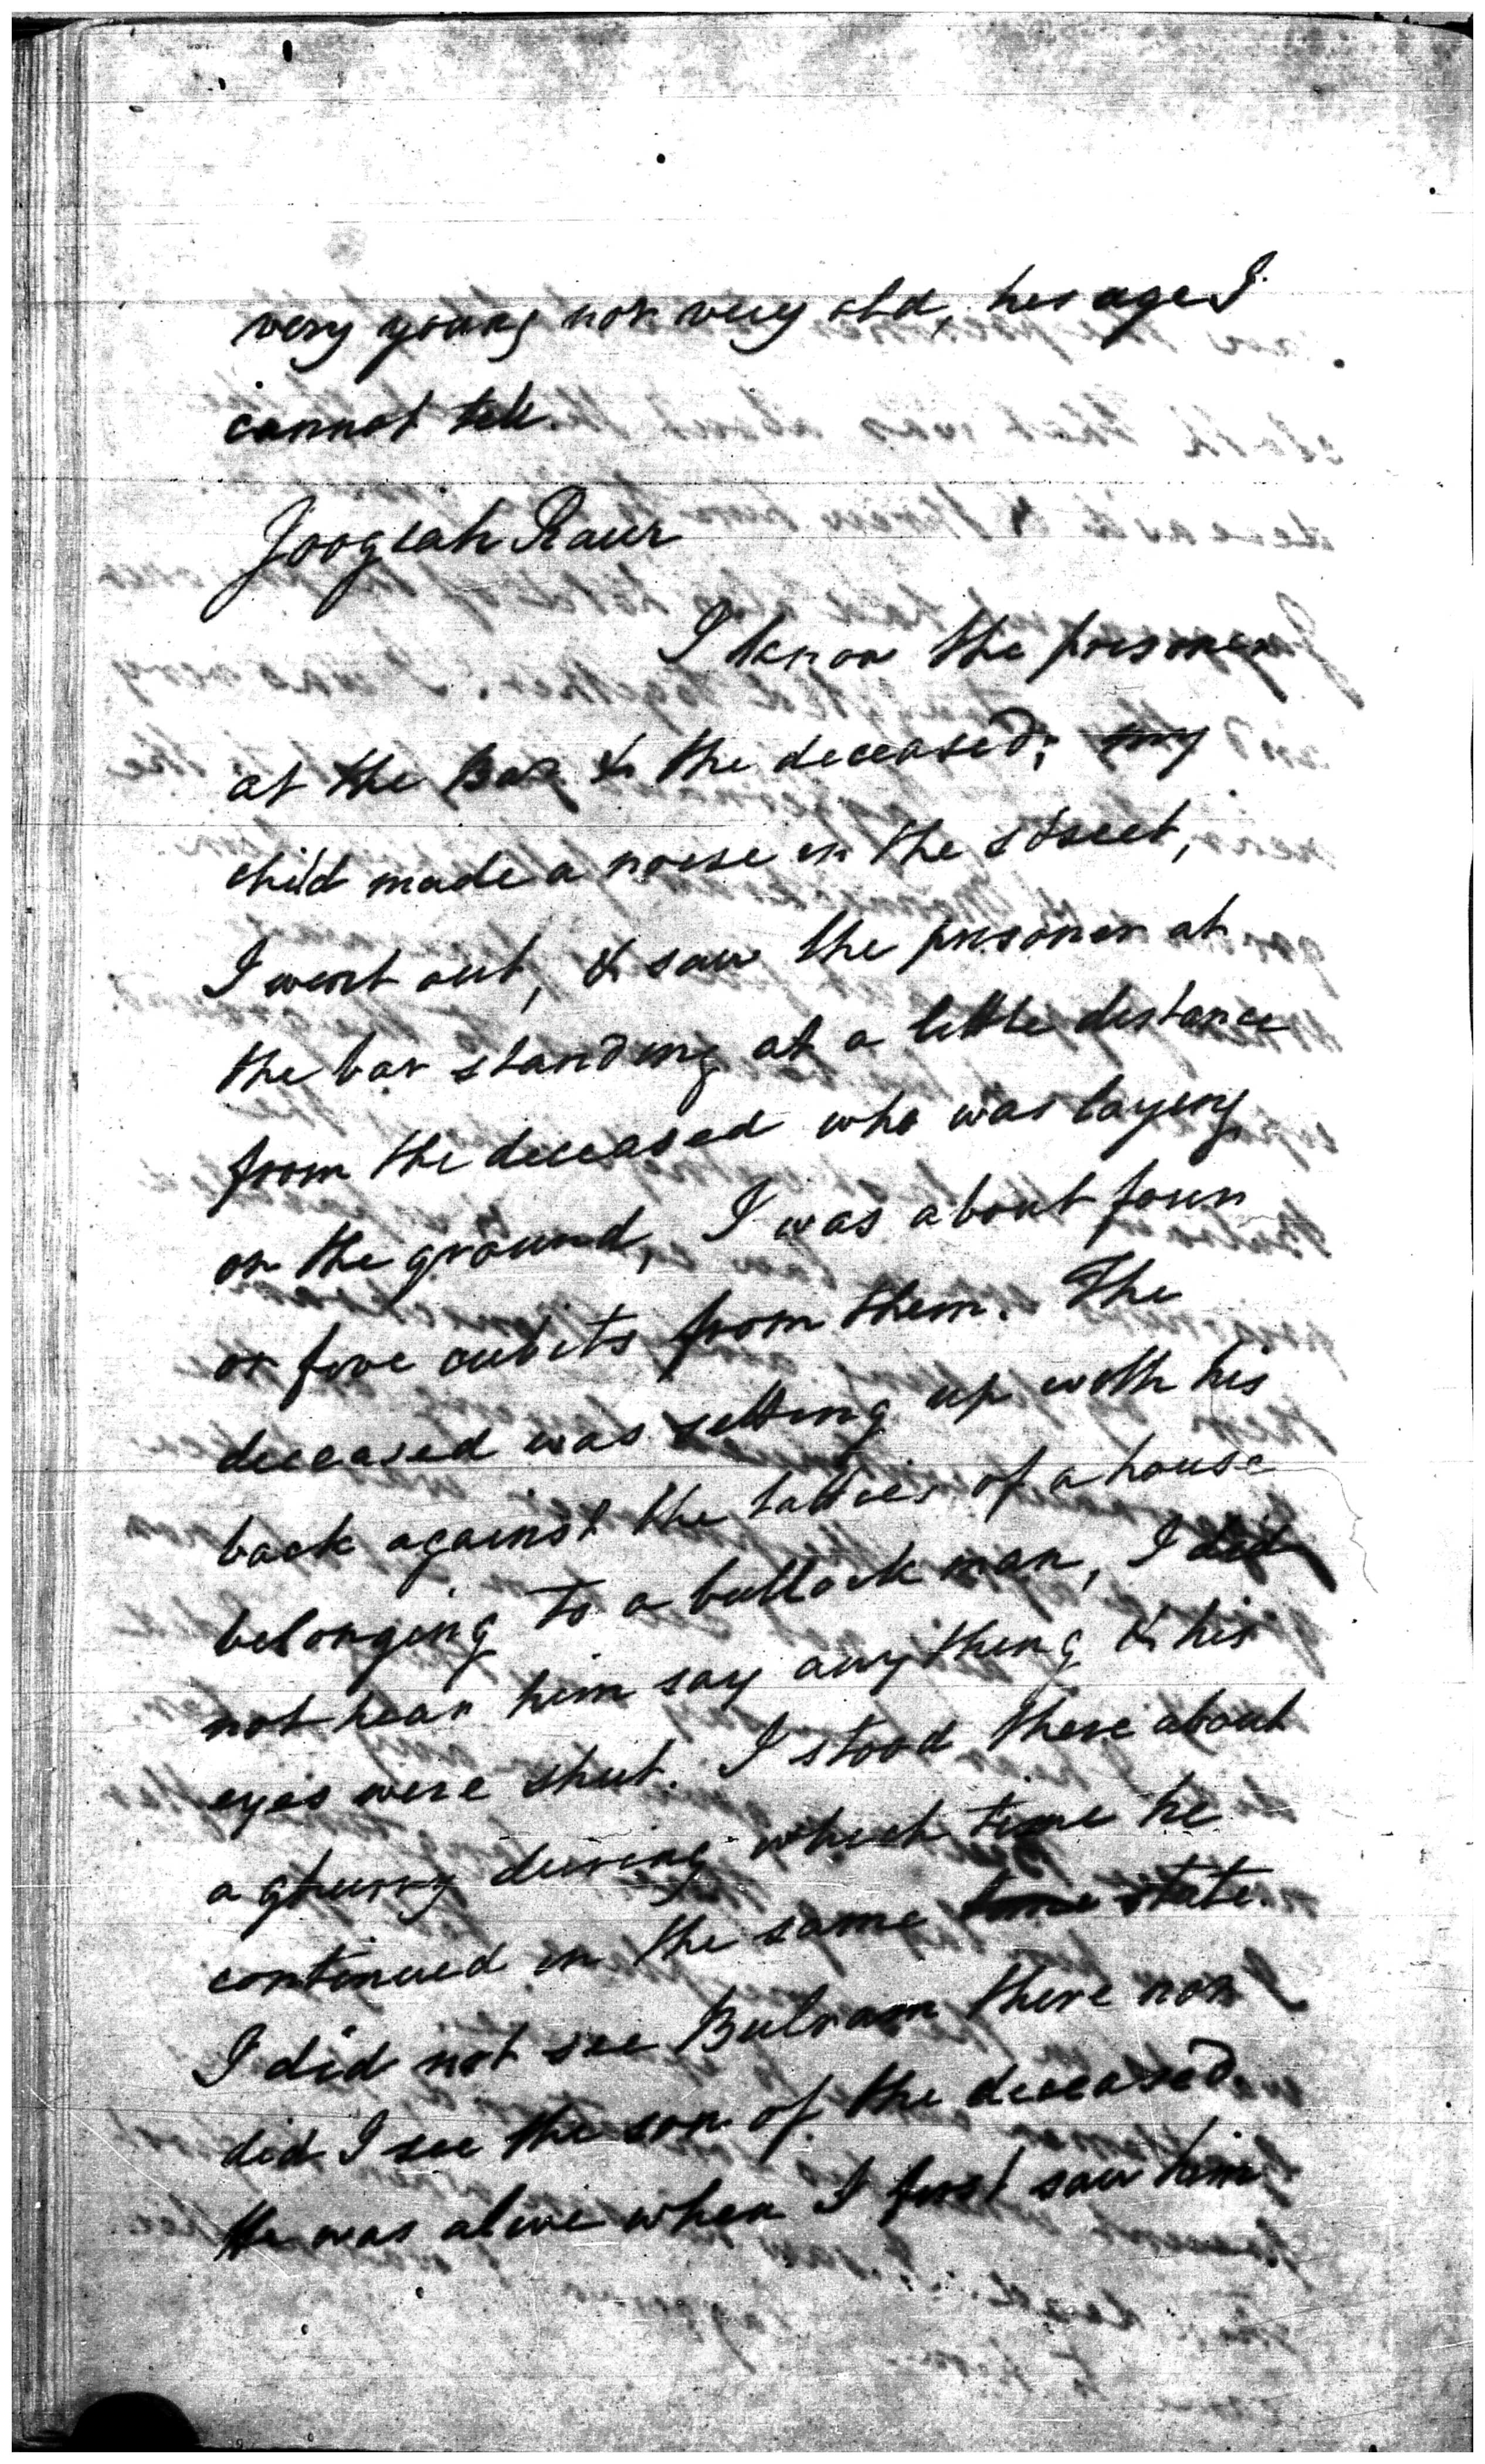 very young nor very old, her age I
cannot tell.
Joogiah Raur
I know the prisoner
at the Bar & the deceased; my
child made a noise in the street,
I went out, & saw the prisoner at
the bar standing at a little distance
from the deceased who was laying
on the ground, I was about four
or five cubits from them. The
deceased was setting up with his
back against the tatties of a house
belonging to a bullock man, I did
not hear him say anything & his
eyes were shut. I stood there about
a ghurry during which time he
continued in the same time state.
I did not see Bulram there nor
did I see the son of the deceased.
He was alive when I first saw him